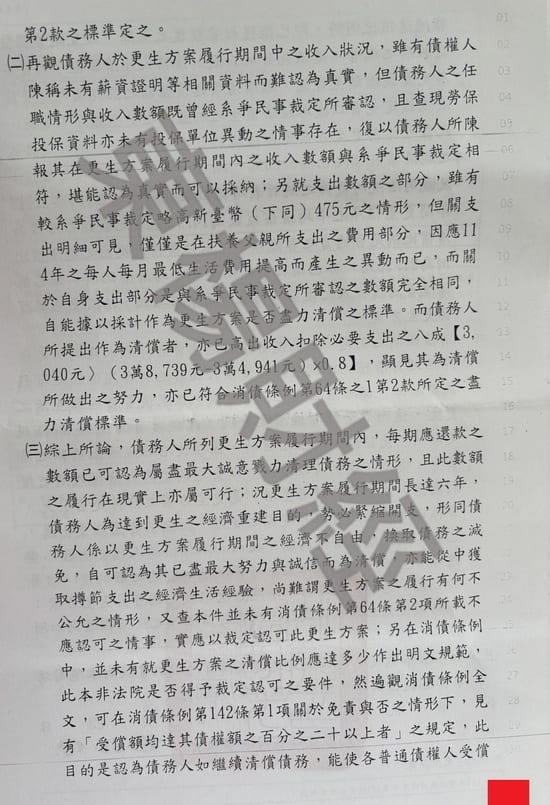 第2款之標準定之。
㈡再觀債務人於更生方案履行期間中之收入狀況，雖有債權人
陳稱未有薪資證明等相關資料而難認為真實，但債務人之任
職情形與收入數額既曾經系爭民事裁定所審認，且查現勞保
投保資料亦未有投保單位異動之情事存在，復以債務人所陳
報其在更生方案履行期間內之收入數額與系爭民事裁定相
符，堪能認為真實而可以採納；另就支出數額之部分，雖有
較系爭民事裁定略高新臺幣（下同）475元之情形，但關支
出明細可見，僅僅是在扶養父親所支出之費用部分，因應11
4年之每人每月最低生活費用提高而產生之異動而已，而關
於自身支出部分是與系爭民事裁定所審認之數額完全相同，
自能據以採計作為更生方案是否盡力清償之標準。而債務人
所提出作為清償者，亦已高出收入扣除必要支出之八成【3,
040元〉（3萬8,739元-3萬4,941元）×0.8】，顯見其為清償
所做出之努力，亦已符合消債條例第64條之1第2款所定之盡
力清償標準。
㈢綜上所論，債務人所列更生方案履行期間內，每期應還款之
數額已可認為屬盡最大誠意戮力清理債務之情形，且此數額
之履行在現實上亦屬可行；況更生方案履行期間長達六年，
債務人為達到更生之經濟重建目的，勢必緊縮開支，形同債
務人係以更生方案履行期間之經濟不自由，換取債務之減
免，自可認為其已盡最大努力與誠信而為清償，亦能從中獲
取撙節支出之經濟生活經驗，尚難謂更生方案之履行有何不
公允之情形，又查本件並未有消債條例第64條第2項所載不
應認可之情事，實應以裁定認可此更生方案；另在消債條例
中，並未有就更生方案之清償比例應達多少作出明文規範，
此本非法院是否得予裁定認可之要件，然遍觀消債條例全
文，可在消債條例第142條第1項關於免責與否之情形下，見
有「受償額均達其債權額之百分之二十以上者」之規定，此
目的是認為債務人如繼續清償債務，能使各普通債權人受償